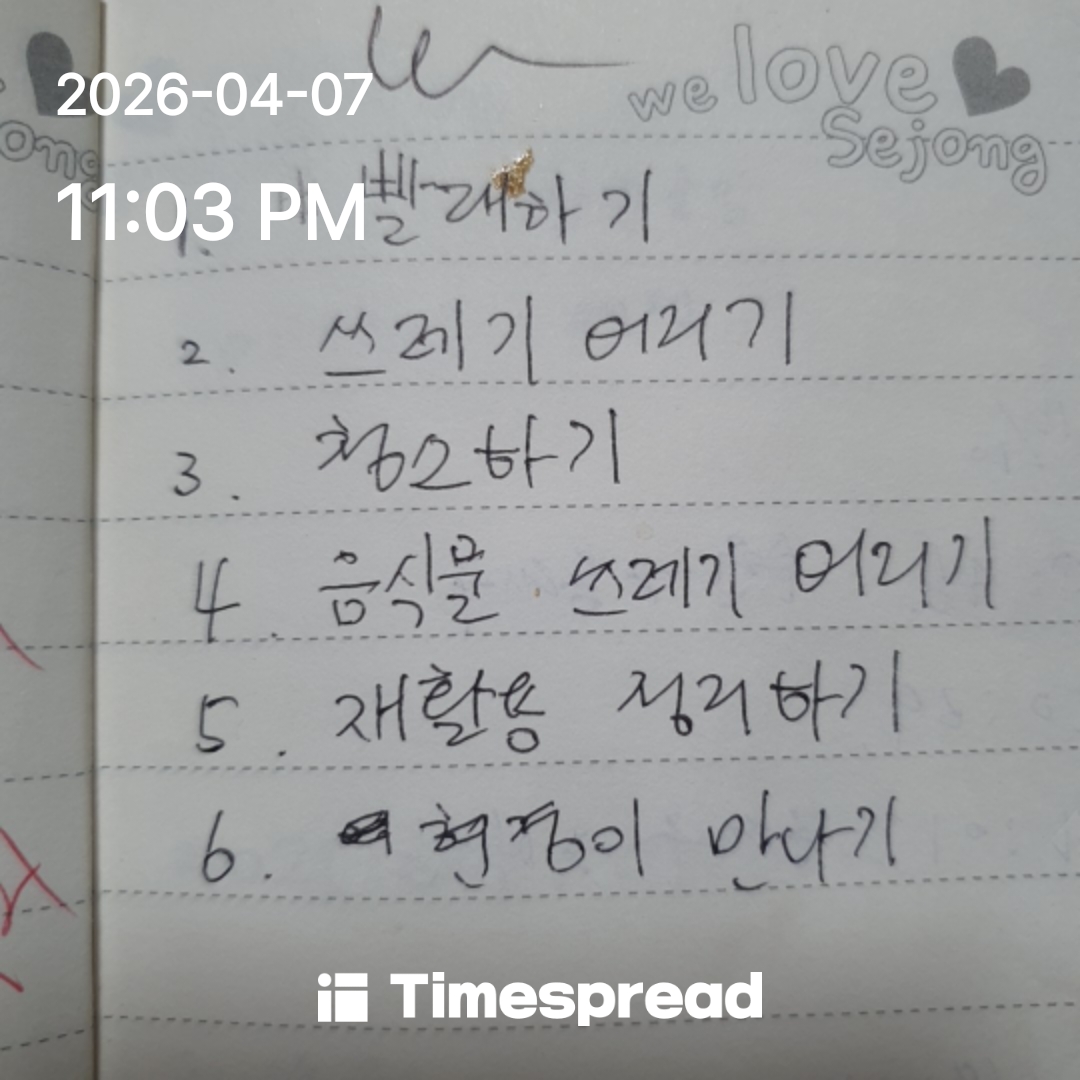 2026-04-07
we love
Sejong
11:03 PM
1. 빨래하기
2. 쓰레기 버리기
3. 청소하기
4. 음식물 쓰레기 버리기
5. 재활용 정리하기
6. 현정이 만나기
Timespread